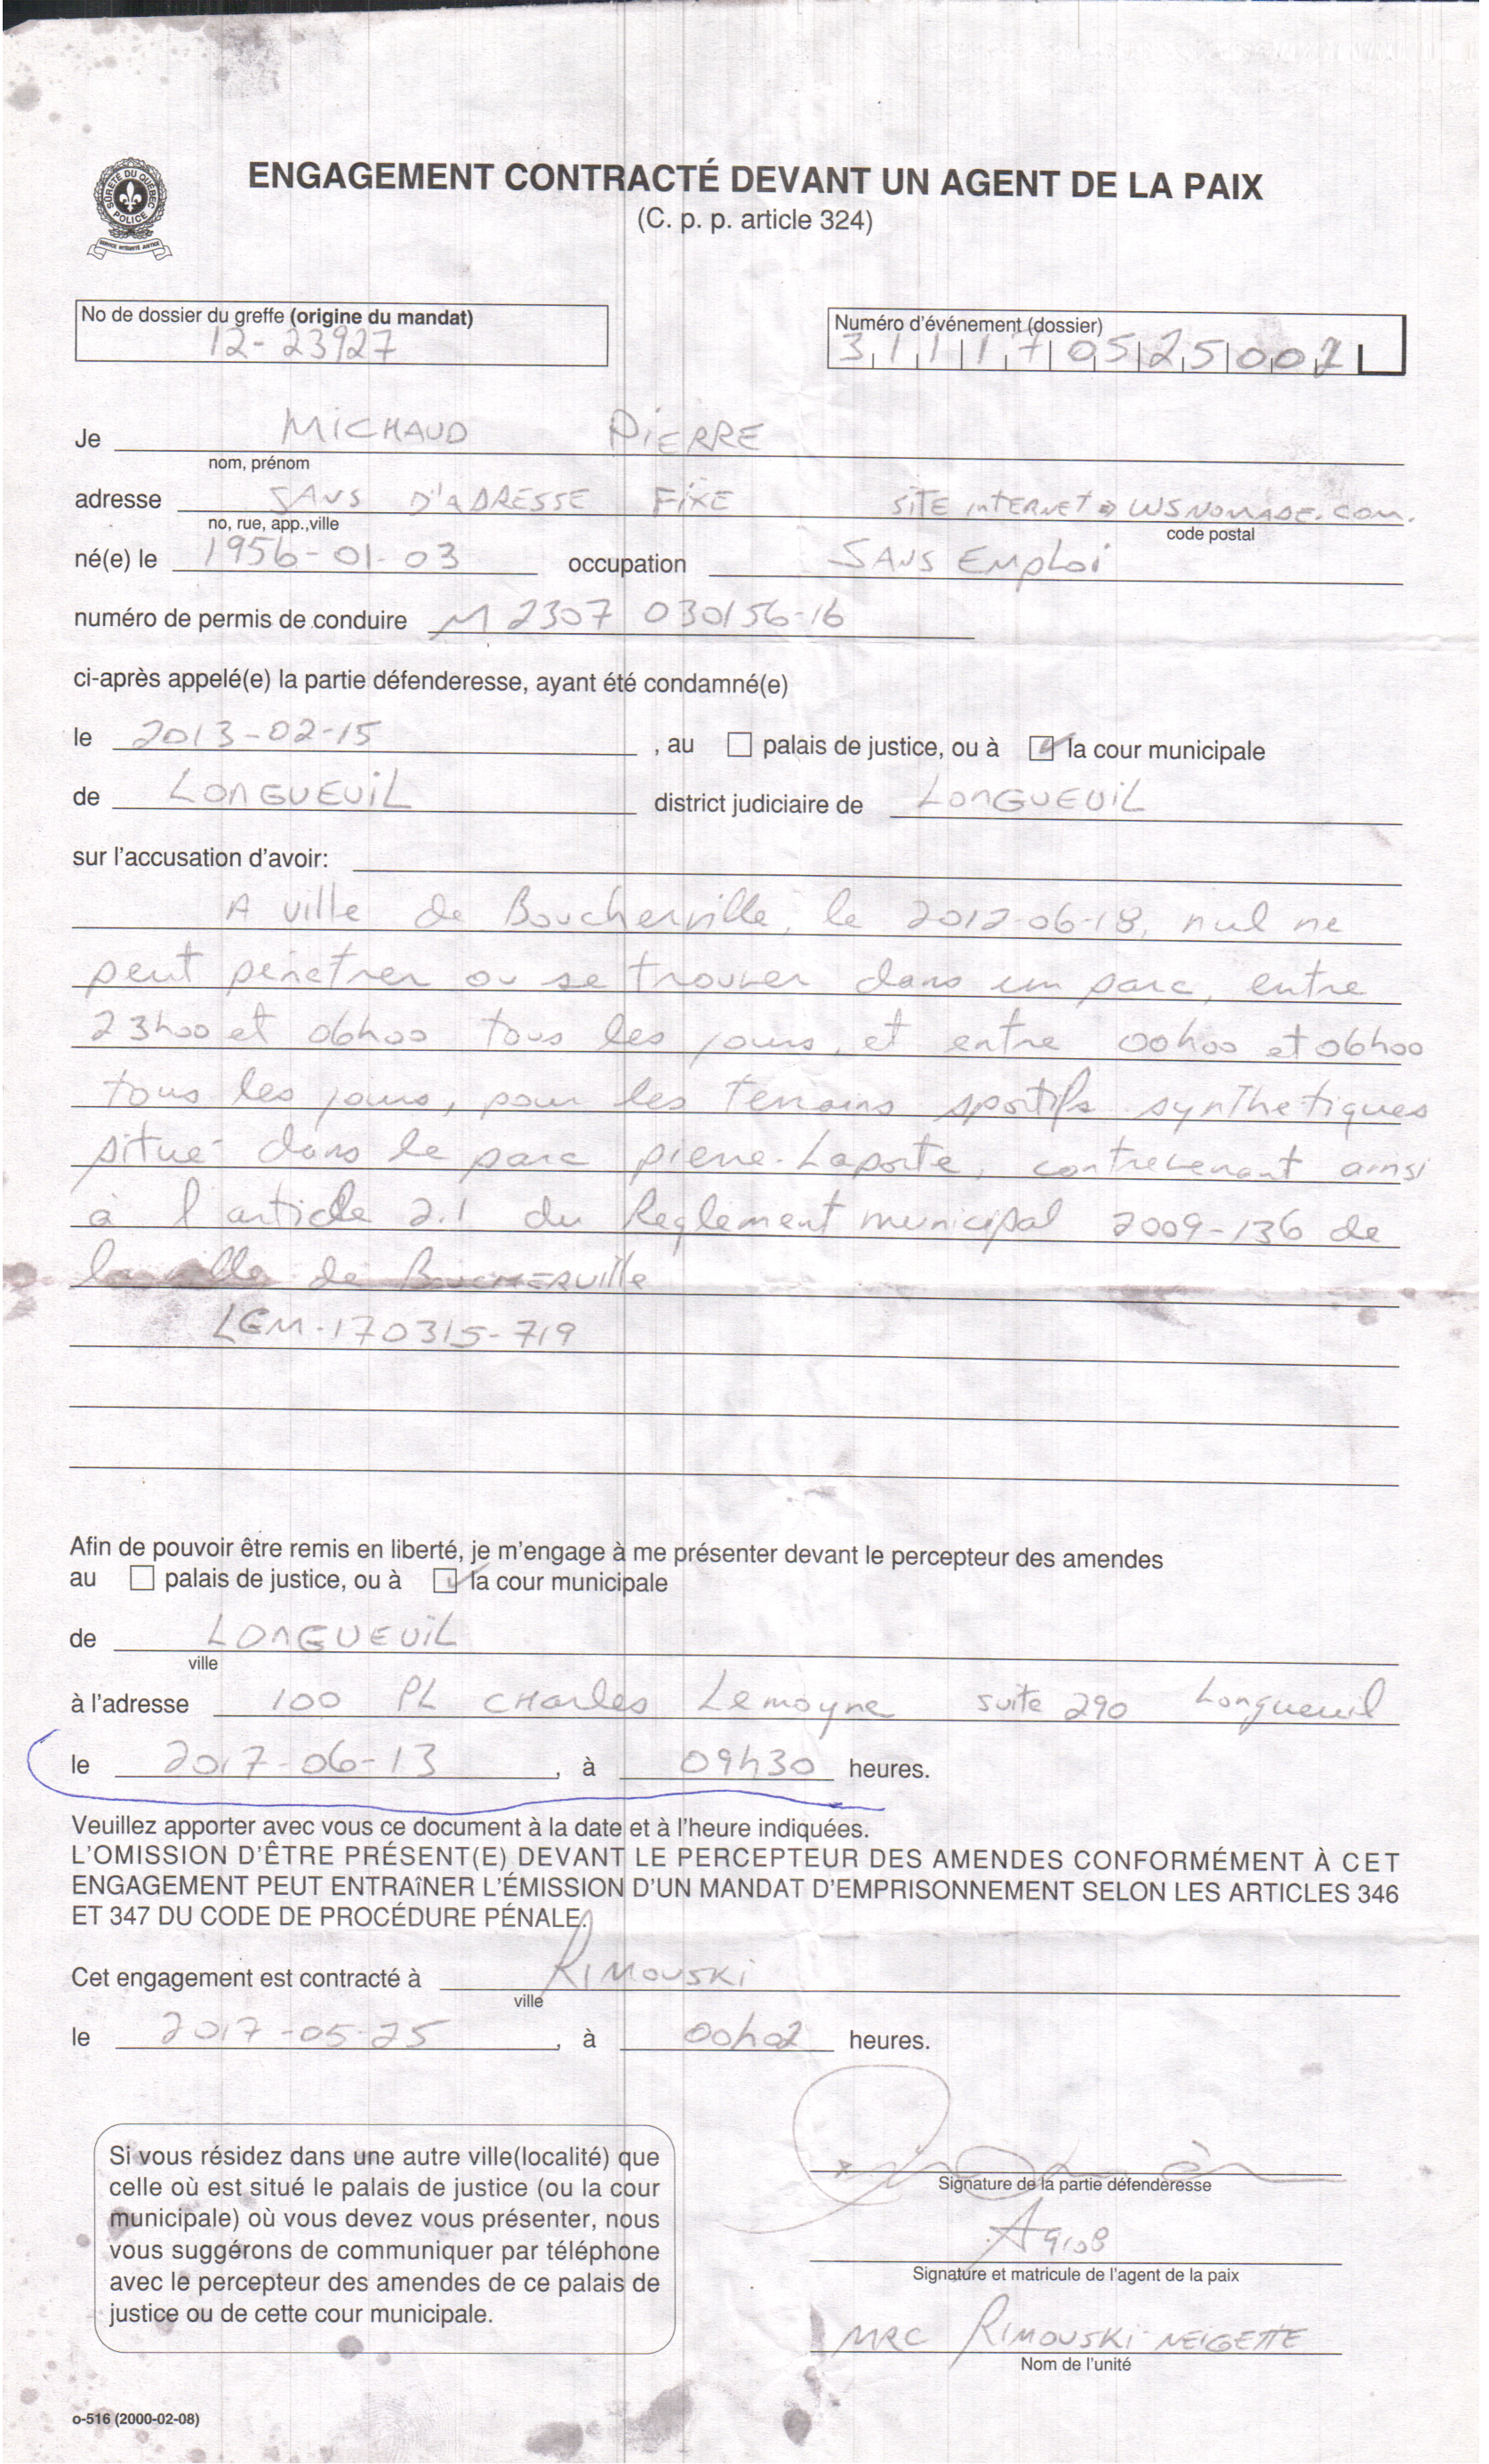 ENGAGEMENT CONTRACTÉ DEVANT UN AGENT DE LA PAIX
(C. p. p. article 324)
SÛRETÉ DU QUÉBEC
POLICE
SERVICE INTÉGRITÉ JUSTICE
No de dossier du greffe (origine du mandat)
12-23927
Numéro d'événement (dossier)
311170525002
Je MICHAUD PIERRE
nom, prénom
adresse SANS D'ADRESSE FIXE SITE INTERNET ⇒ WSNOMADE.COM.
no, rue, app.,ville code postal
né(e) le 1956-01-03 occupation SANS EMPLOI
numéro de permis de conduire M2307 030156-16
ci-après appelé(e) la partie défenderesse, ayant été condamné(e)
le 2013-02-15 , au ☐ palais de justice, ou à ☑ la cour municipale
de LONGUEUIL district judiciaire de LONGUEUIL
sur l'accusation d'avoir:
A ville de Boucherville, le 2012-06-18, nul ne
peut pénétrer ou se trouver dans un parc, entre
23h00 et 06h00 tous les jours, et entre 00h00 et 06h00
tous les jours, pour les terrains sportifs synthetiques
situé dans le parc pierre-Laporte, contrevenant ainsi
à l'article 2.1 du Reglement municipal 2009-136 de
la ville de BOUCHERVILLE
LGM-170315-719
Afin de pouvoir être remis en liberté, je m'engage à me présenter devant le percepteur des amendes
au ☐ palais de justice, ou à ☑ la cour municipale
de LONGUEUIL
ville
à l'adresse 100 PL CHarles Lemoyne suite 290 Longueuil
le 2017-06-13 , à 09h30 heures.
Veuillez apporter avec vous ce document à la date et à l'heure indiquées.
L'OMISSION D'ÊTRE PRÉSENT(E) DEVANT LE PERCEPTEUR DES AMENDES CONFORMÉMENT À CET
ENGAGEMENT PEUT ENTRAîNER L'ÉMISSION D'UN MANDAT D'EMPRISONNEMENT SELON LES ARTICLES 346
ET 347 DU CODE DE PROCÉDURE PÉNALE.
Cet engagement est contracté à RIMOUSKI
ville
le 2017-05-25 , à 00h02 heures.
Si vous résidez dans une autre ville(localité) que
celle où est situé le palais de justice (ou la cour
municipale) où vous devez vous présenter, nous
vous suggérons de communiquer par téléphone
avec le percepteur des amendes de ce palais de
justice ou de cette cour municipale.
Signature de la partie défenderesse
9108
Signature et matricule de l'agent de la paix
MRC RIMOUSKI-NEIGETTE
Nom de l'unité
o-516 (2000-02-08)